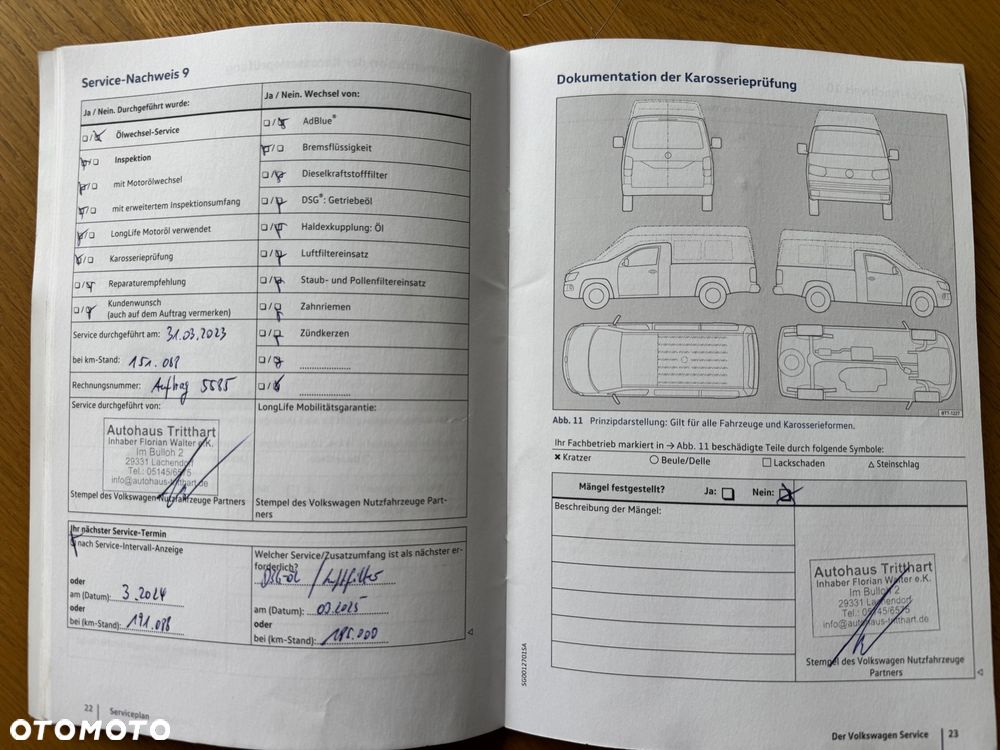 Service-Nachweis 9
Ja / Nein. Durchgeführt wurde:
Ja / Nein. Wechsel von:
Ölwechsel-Service
AdBlue®
Inspektion
Bremsflüssigkeit
mit Motorölwechsel
Dieselkraftstofffilter
mit erweitertem Inspektionsumfang
DSG®: Getriebeöl
LongLife Motoröl verwendet
Haldexkupplung: Öl
Karosserieprüfung
Luftfiltereinsatz
Reparaturempfehlung
Staub- und Pollenfiltereinsatz
Kundenwunsch
(auch auf dem Auftrag vermerken)
Zahnriemen
Service durchgeführt am: 31.03.2023
Zündkerzen
bei km-Stand: 151.088
Rechnungsnummer: Auftrag 5585
Service durchgeführt von:
LongLife Mobilitätsgarantie:
Autohaus Tritthart
Inhaber Florian Walter e.K.
Im Bulloh 2
29331 Lachendorf
Tel.: 05145/6575
info@autohaus-tritthart.de
Stempel des Volkswagen Nutzfahrzeuge Partners
Stempel des Volkswagen Nutzfahrzeuge Part-
ners
Ihr nächster Service-Termin
nach Service-Intervall-Anzeige
Welcher Service/Zusatzumfang ist als nächster er-
forderlich?
DSG-Öl / Luftfilter
oder
am (Datum): 3.2024
am (Datum): 03.2025
oder
oder
bei (km-Stand): 191.088
bei (km-Stand): 185.000
22 Serviceplan
Dokumentation der Karosserieprüfung
BTT-1227
Abb. 11 Prinzipdarstellung: Gilt für alle Fahrzeuge und Karosserieformen.
Ihr Fachbetrieb markiert in → Abb. 11 beschädigte Teile durch folgende Symbole:
Kratzer Beule/Delle Lackschaden Steinschlag
Mängel festgestellt? Ja: Nein:
Beschreibung der Mängel:
Autohaus Tritthart
Inhaber Florian Walter e.K.
Im Bulloh 2
29331 Lachendorf
Tel.: 05145/6575
info@autohaus-tritthart.de
Stempel des Volkswagen Nutzfahrzeuge
Partners
SG0012701SA
Der Volkswagen Service 23
OTOMOTO